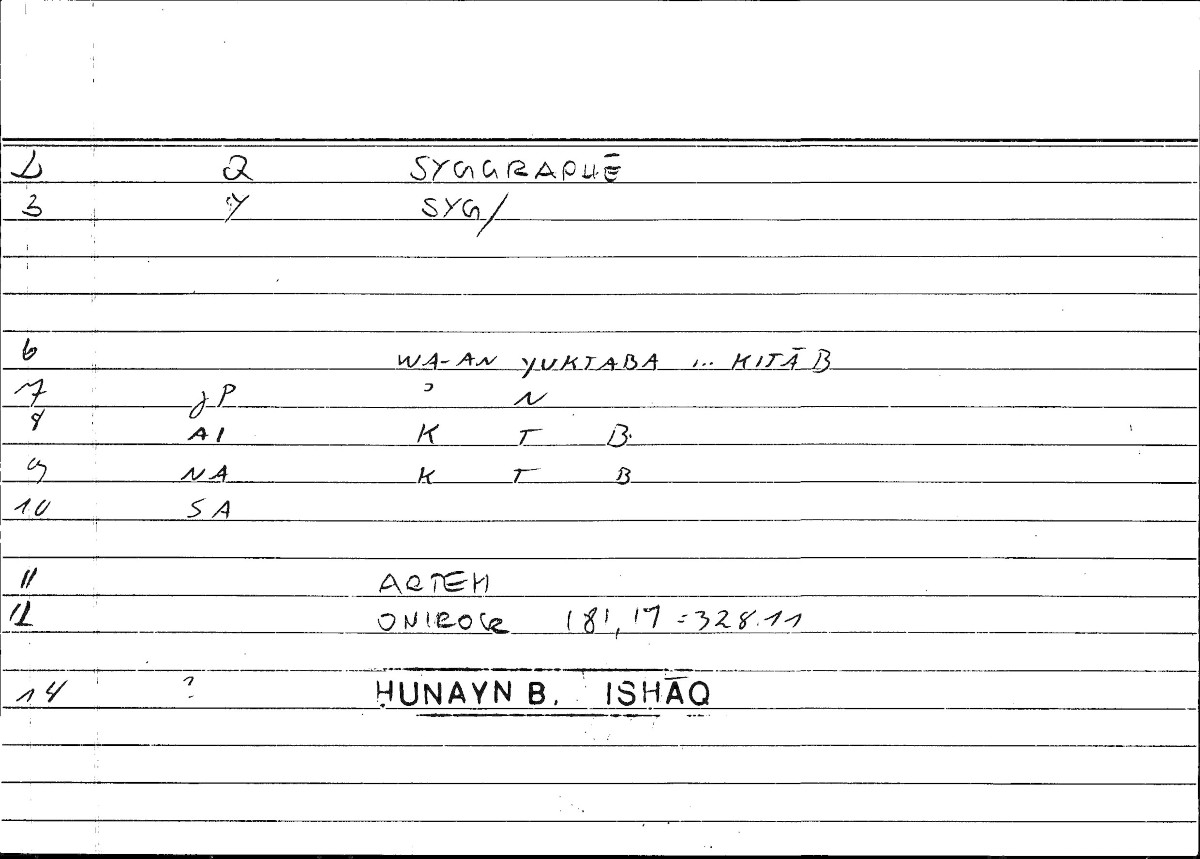 2 Q SYGGRAPHĒ
3 Y SYG/
6 WA-AN YUKTABA ... KITĀB
7 JP ʾ N
8 AI K T B
9 NA K T B
10 SA
11 ARTEM
12 ONIROCR 181,17=328.11
14 ? ḤUNAYN B. ISḤĀQ